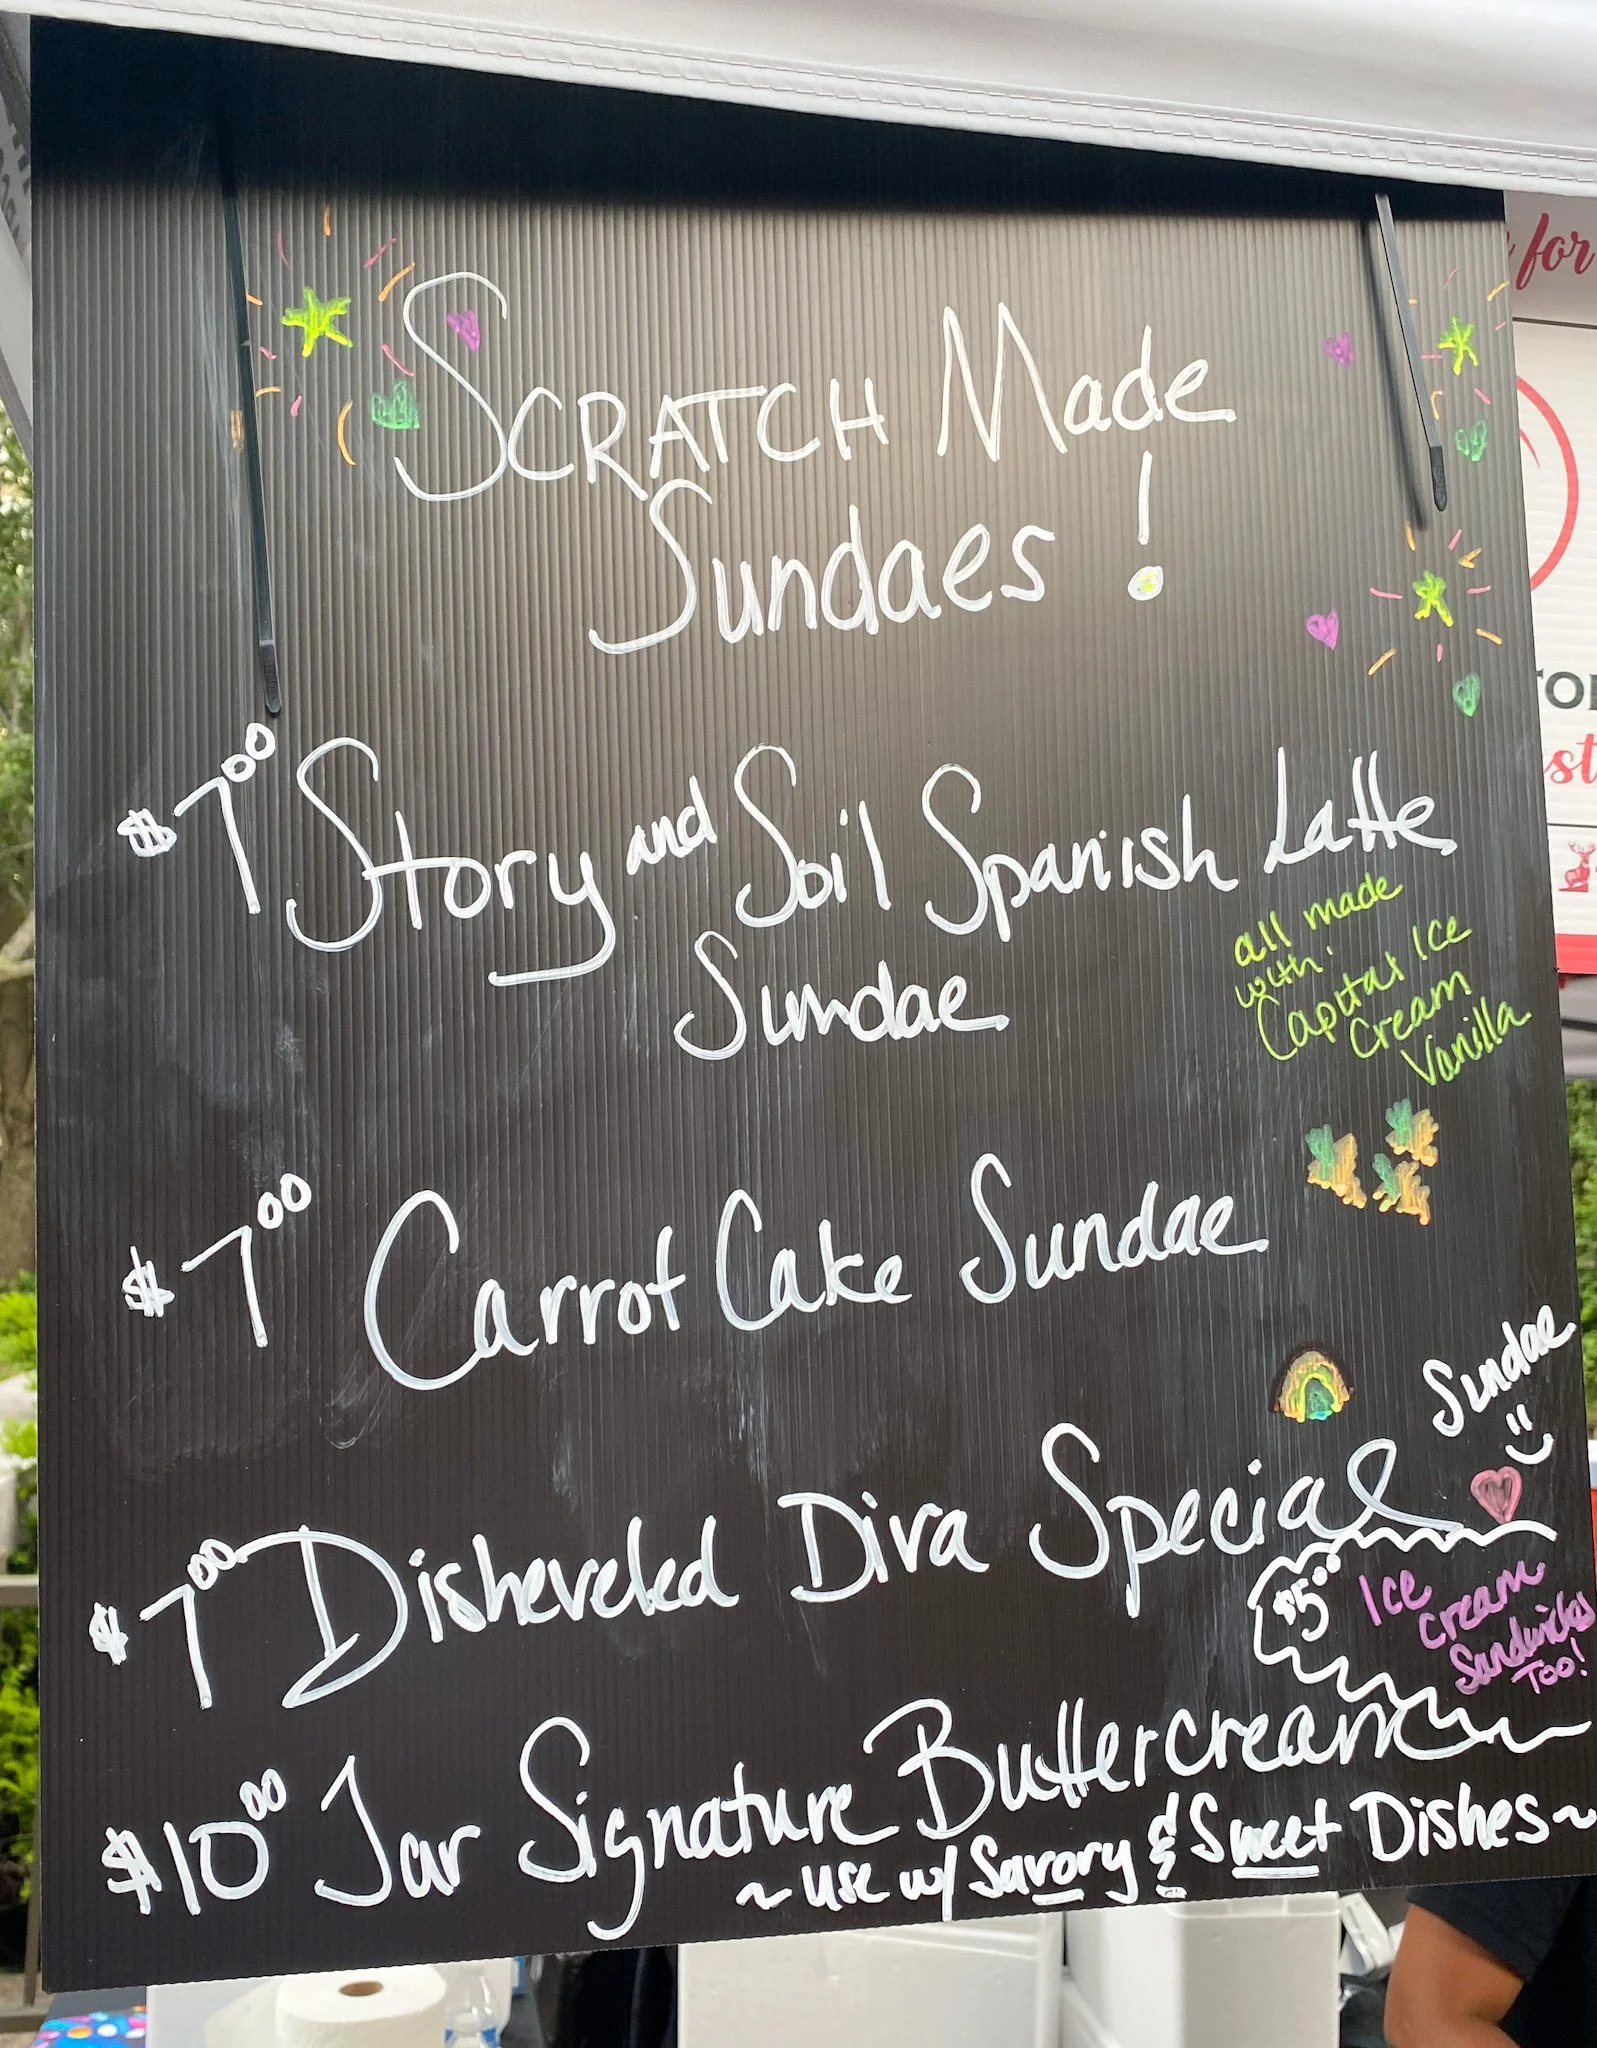 SCRATCH Made
Sundaes!
$7⁰⁰ Story and Soil Spanish Latte
Sundae
all made
with:
Capital Ice
Cream
Vanilla
$7⁰⁰ Carrot Cake Sundae
$7⁰⁰ Disheveled Diva Special
Sundae
$5⁰⁰ Ice
Cream
Sandwiches
Too!
$10⁰⁰ Jar Signature Buttercream
~ use w/ Savory & Sweet Dishes ~
for